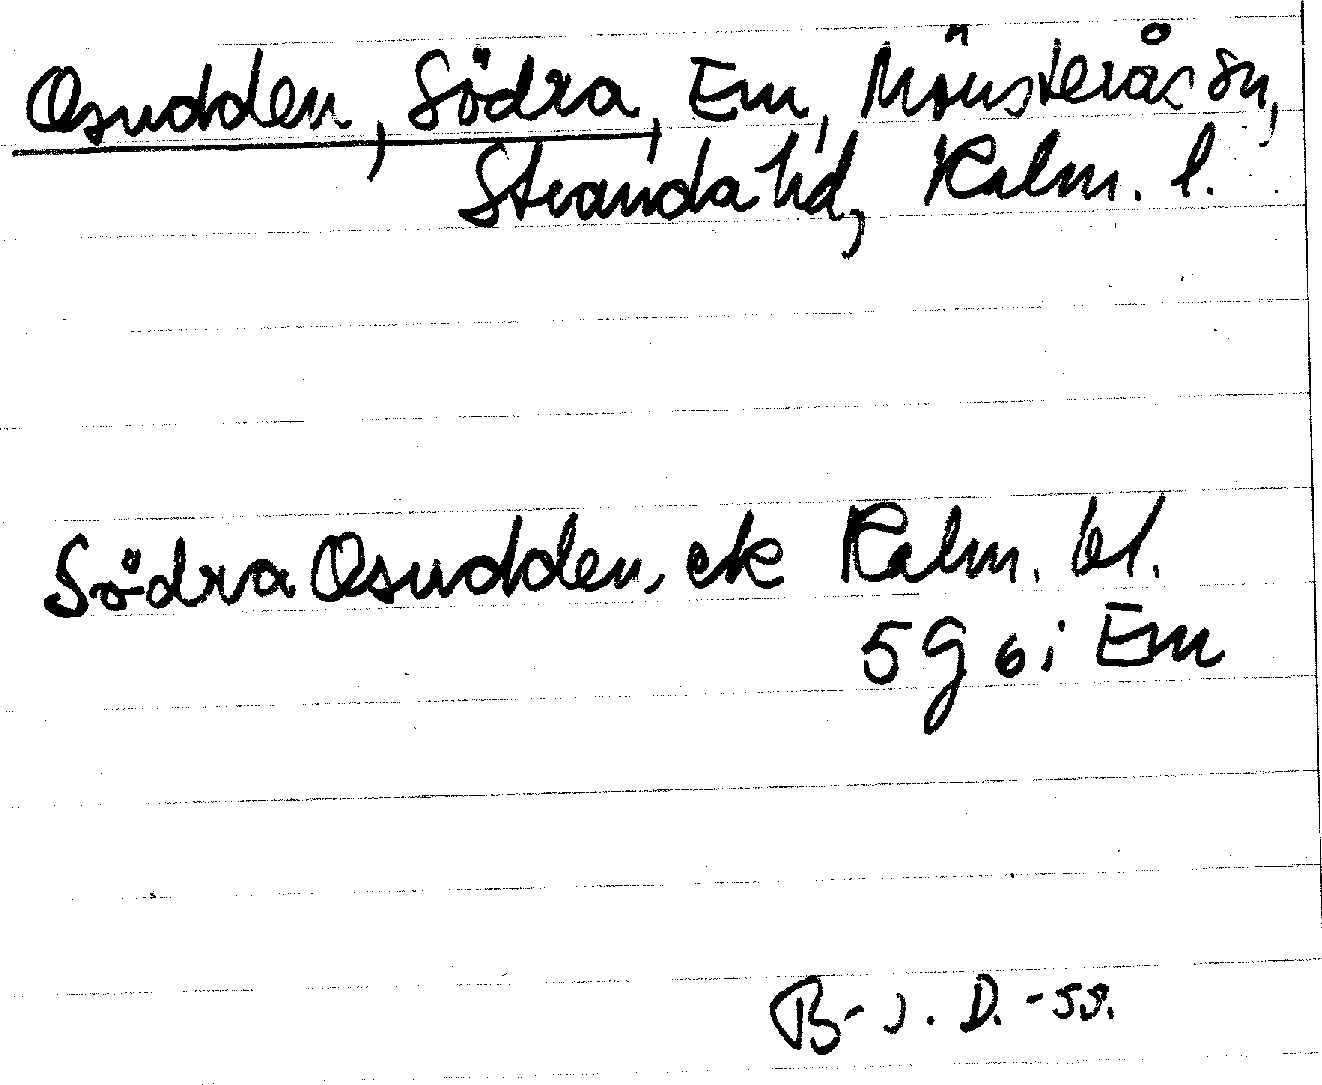 Osudden, Södra, Em, Mönsterås sn,
Stranda hd, Kalm. l.
Södra Osudden, ek Kalm. bl.
5 g 6 i Em
B-J. D.